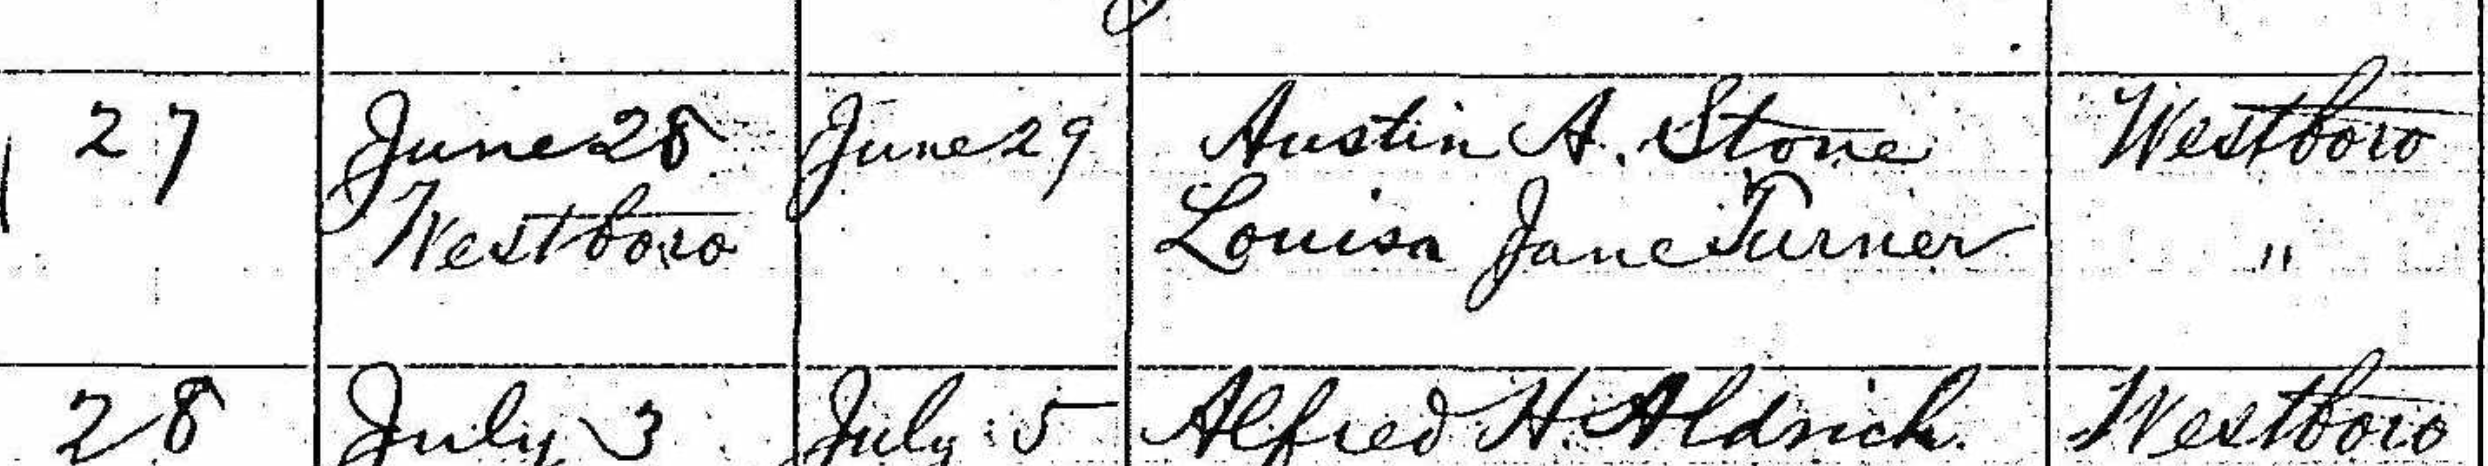 27 June 28 June 29 Austin A. Stone Westboro
Westboro Louisa Jane Turner "
28 July 3 July 5 Alfred H. Aldrich Westboro